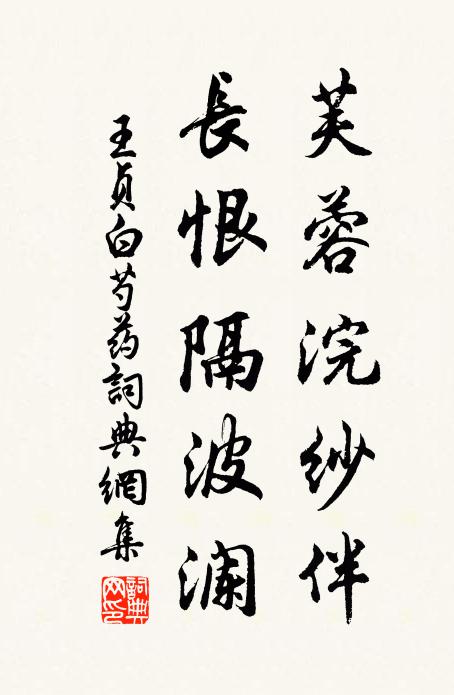 芙蓉浣紗伴
長恨隔波瀾
王貞白芍药詞典網集
詞典网印